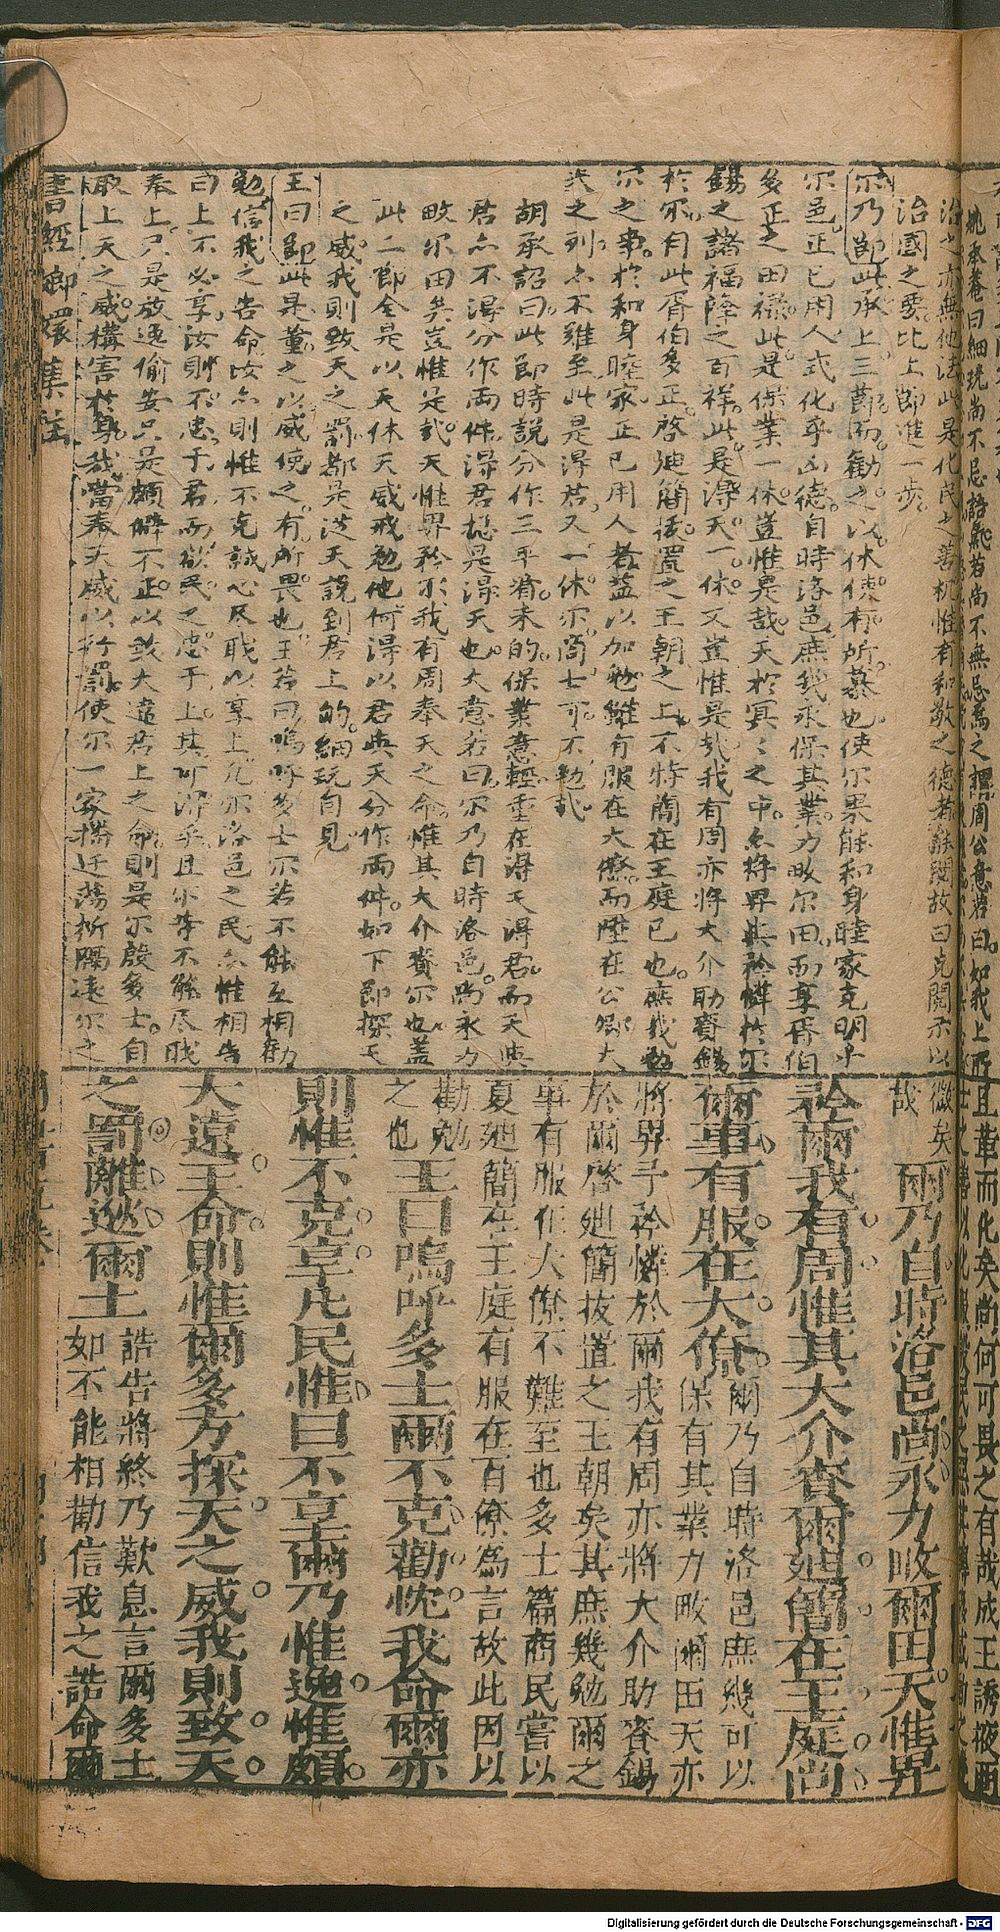 治之亦無他法此是化民之善机惟有和敬之德若離間故曰克閱示以
治國之要比上節進一步
尔乃節此承上三節而勸之以休使有所慕也使尔果能和身睦家克明乎
尔邑正已用人式化乎凶德自時洛邑庶我永保其業力畋尔田而享胥伯
多正之田禄此是保業一休豈惟是哉天於冥冥之中亦將畀與矜憐於尔
錫之諸福降之百祥此是得天一休又豈惟是哉我有周亦將大介助賚錫
於尔有此胥伯多正啓迪簡拔置之王朝之上不特簡在王庭已也庶我勉
尔之事於和身睦家正已用人者益以加勉雖有服在大僚而陞在公卿大
夫之列亦不難至此是得君又一休尔商士可不勉哉
胡承詔曰此節時說分作三平看未的保業意輕重在得天得君而天與
君亦不得分作兩件得君摠是得天也大意若曰尔乃自時洛邑尚永力
畋尔田矣豈惟是哉天惟畀矜尔我有周奉天之命惟其大介賚尔也蓋
此二節全是以天休天威戒勉他何得以君與天分作兩件如下節探天
之威我則致天之罰都是從天說到君上的細玩自見
王曰節此是董之以威使之有所畏也王若曰嗚呼多士尔若不能互相勸
勉信我之告命汝亦則惟不克誠心尽職以享上凡尔洛邑之民亦惟相告
曰上不必享汝則不忠于君而欲民之忠于上其可得乎且尔等不能尽職
奉上只是放逸偷安只是頗僻不正以致大遠君上之命則是尔殷多士自
取上天之威搆害於身我當奉天威以行罰使尔一家播迁蕩析隔遠尔之
書經鄉嬛集註
徵矣
哉 爾乃自時洛邑尚永力畋爾田天惟畀
矜爾我有周惟其大介賚爾迪簡在王庭尚
爾事有服在大僚 爾乃自時洛邑庶幾可以
保有其業力畋爾田天亦
將畀予矜憐於爾我有周亦將大介助賚錫
於爾啓迪簡拔置之王朝矣其庶幾勉爾之
事有服在大僚不難至也多士篇商民嘗以
夏迪簡在王庭有服在百僚為言故此因以
勸勉
之也 王曰嗚呼多士爾不克勸忱我命爾亦
則惟不克享凡民惟曰不享爾乃惟逸惟頗
大遠王命則惟爾多方探天之威我則致天
之罰離逖爾土 誥告將終乃歎息言爾多士
如不能相勸信我之誥命爾
Digitalisierung gefördert durch die Deutsche Forschungsgemeinschaft - DFG